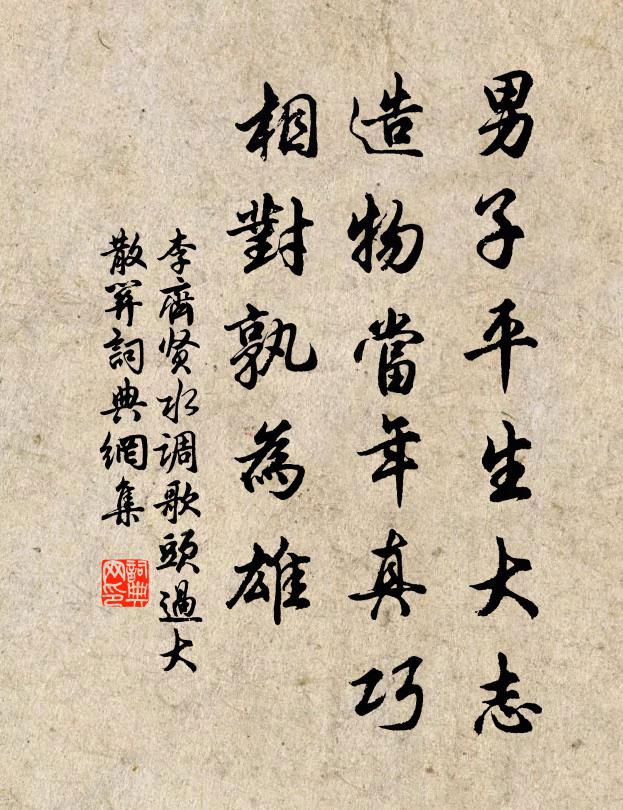 男子平生大志
造物當年真巧
相對孰為雄
李齊贤水调歌頭過大
散關詞典網集
詞典
网印